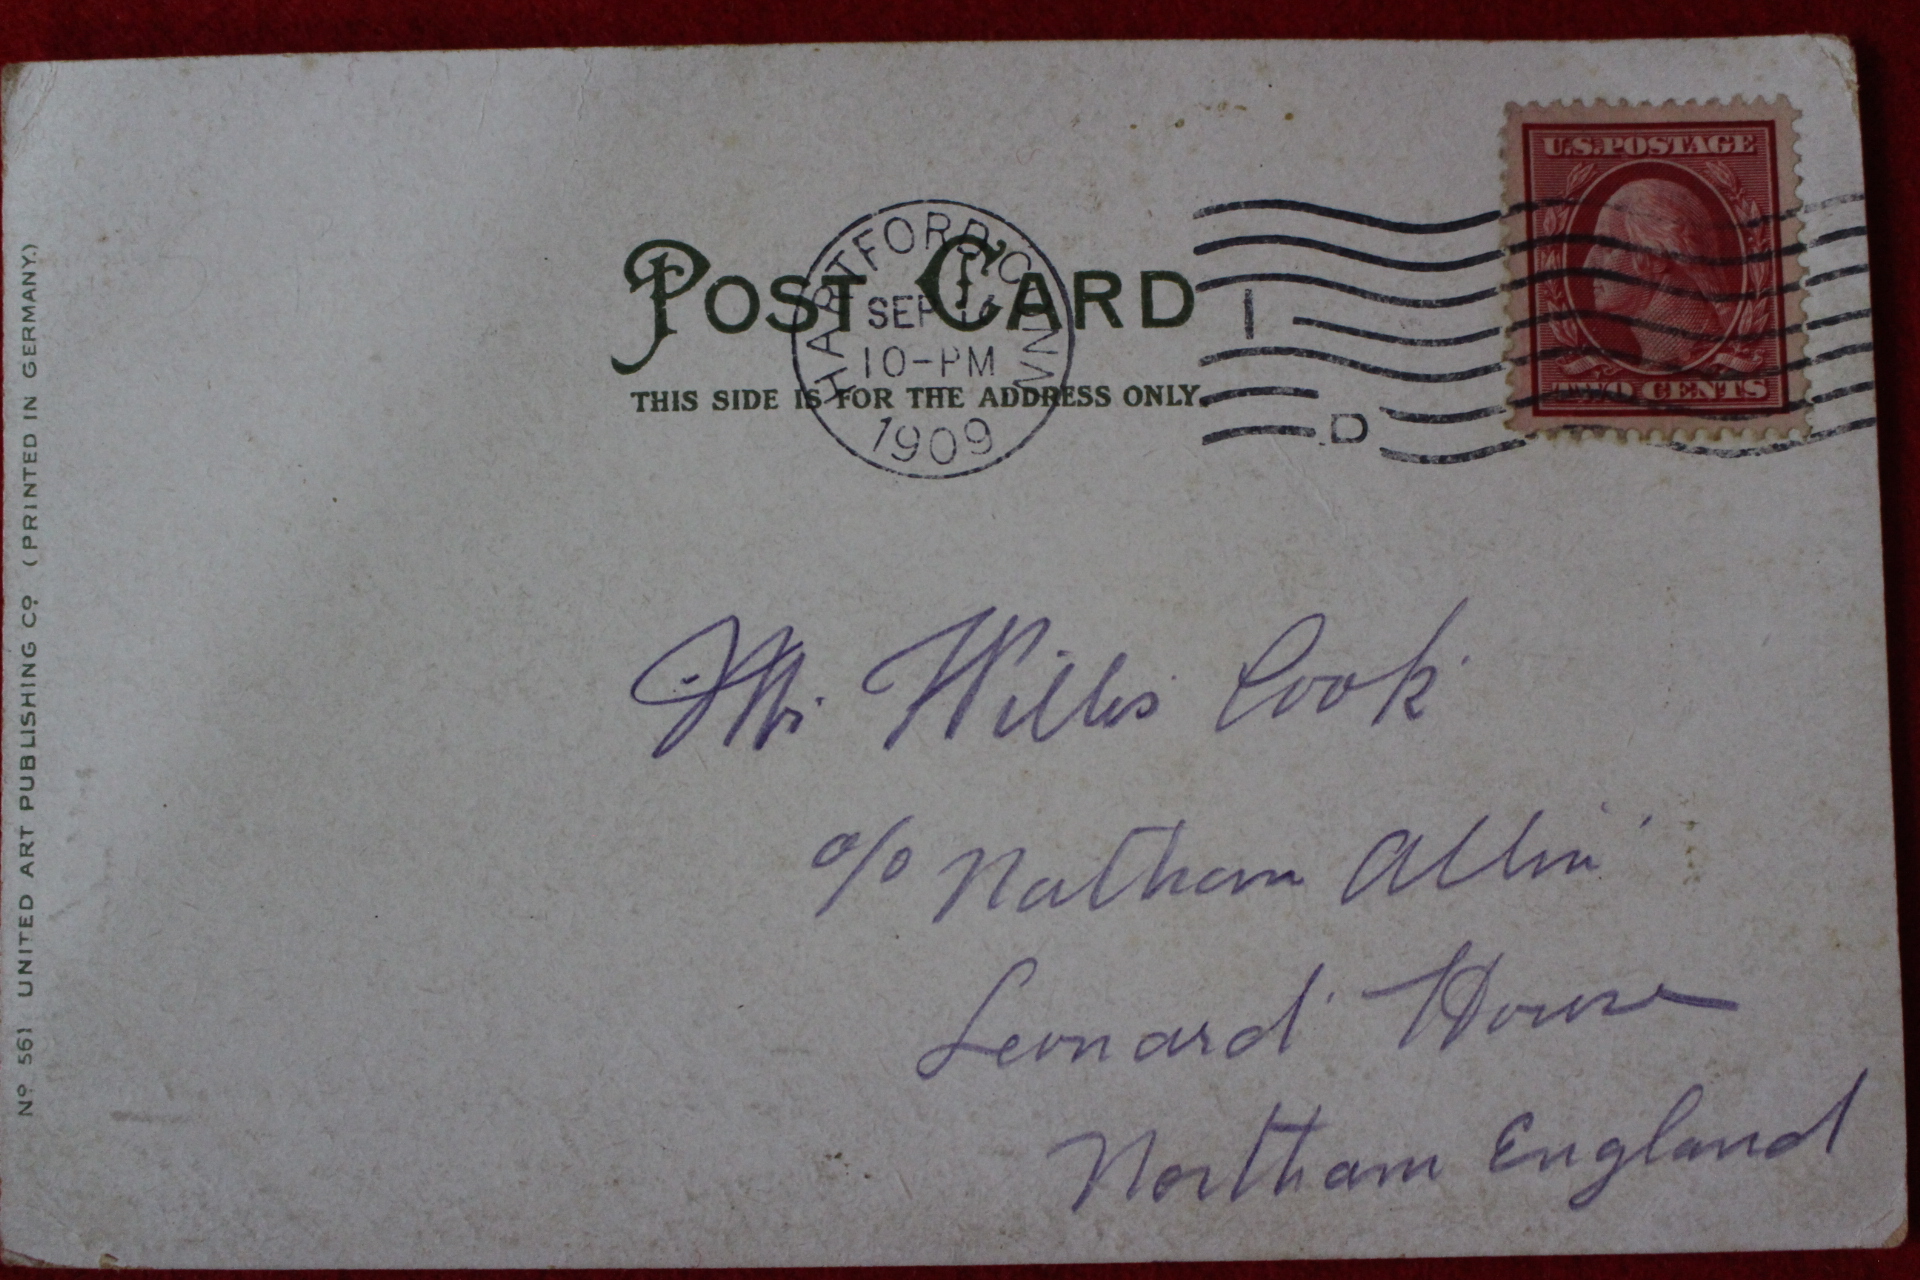 U.S. POSTAGE
TWO CENTS
HARTFORD CONN.
SEP
10-PM
1909
I
D
POST CARD
THIS SIDE IS FOR THE ADDRESS ONLY.
Mr. Willis Cook
c/o Nathan Allin
Leonard House
Northam England
Nº 561 UNITED ART PUBLISHING Cº (PRINTED IN GERMANY.)